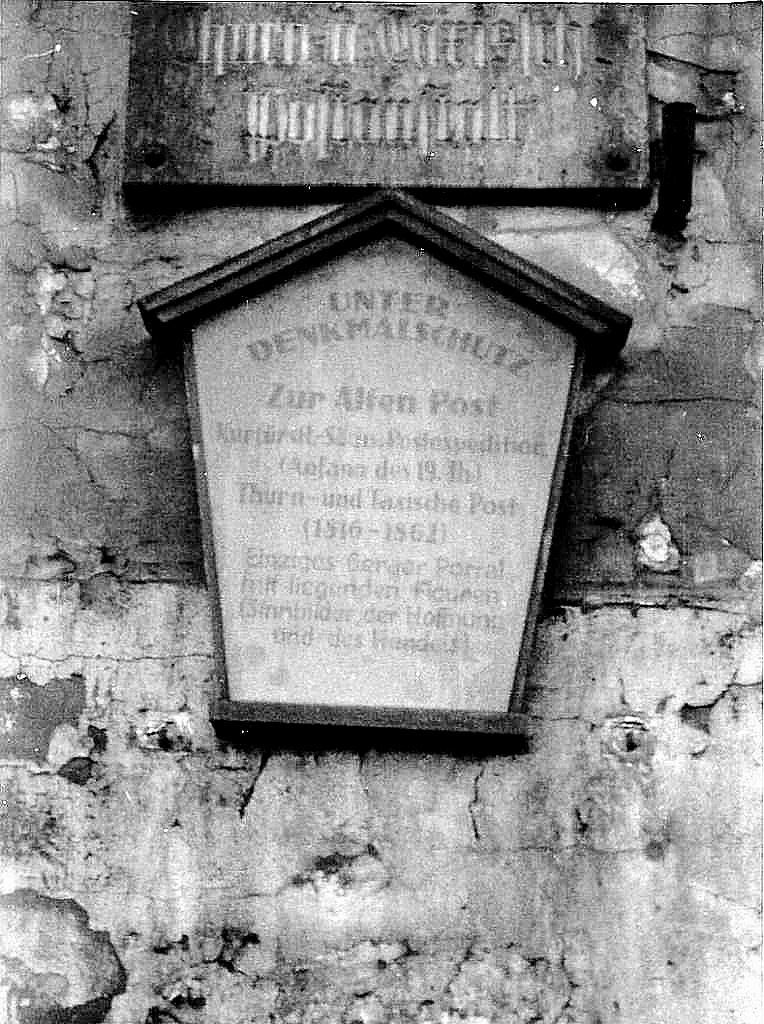 Thurn u. Taxissche
UNTER
DENKMALSCHUTZ
Zur Alten Post
Kurfürstl-Sächs. Postexpedition
(Anfang des 19. Jh.)
Thurn- und Taxissche Post
(1816-1862)
Einziges Geraer Portal
mit liegenden Figuren
(Sinnbilder der Hoffnung
und des Handels)